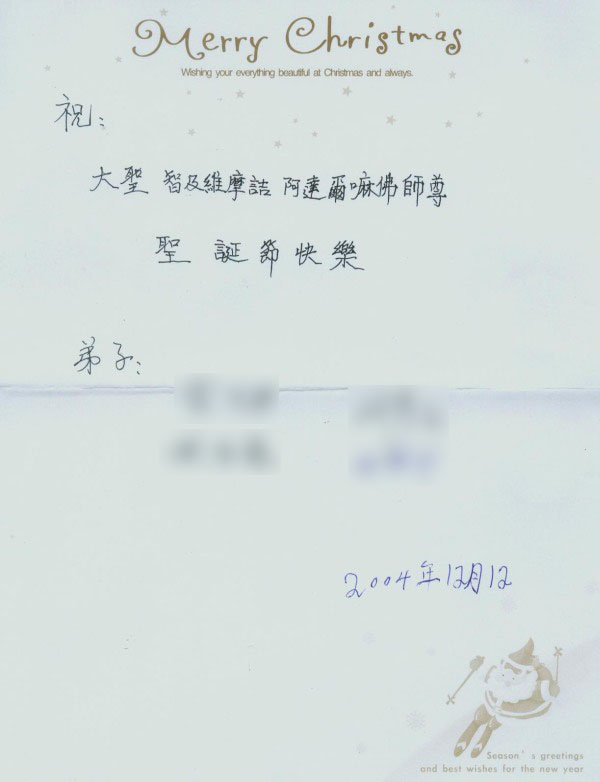 Merry Christmas
Wishing your everything beautiful at Christmas and always.
祝:
大聖 智及維摩詰 阿達爾嘛佛師尊
聖誕節快樂
弟子:
2004年12月12
Season's greetings
and best wishes for the new year